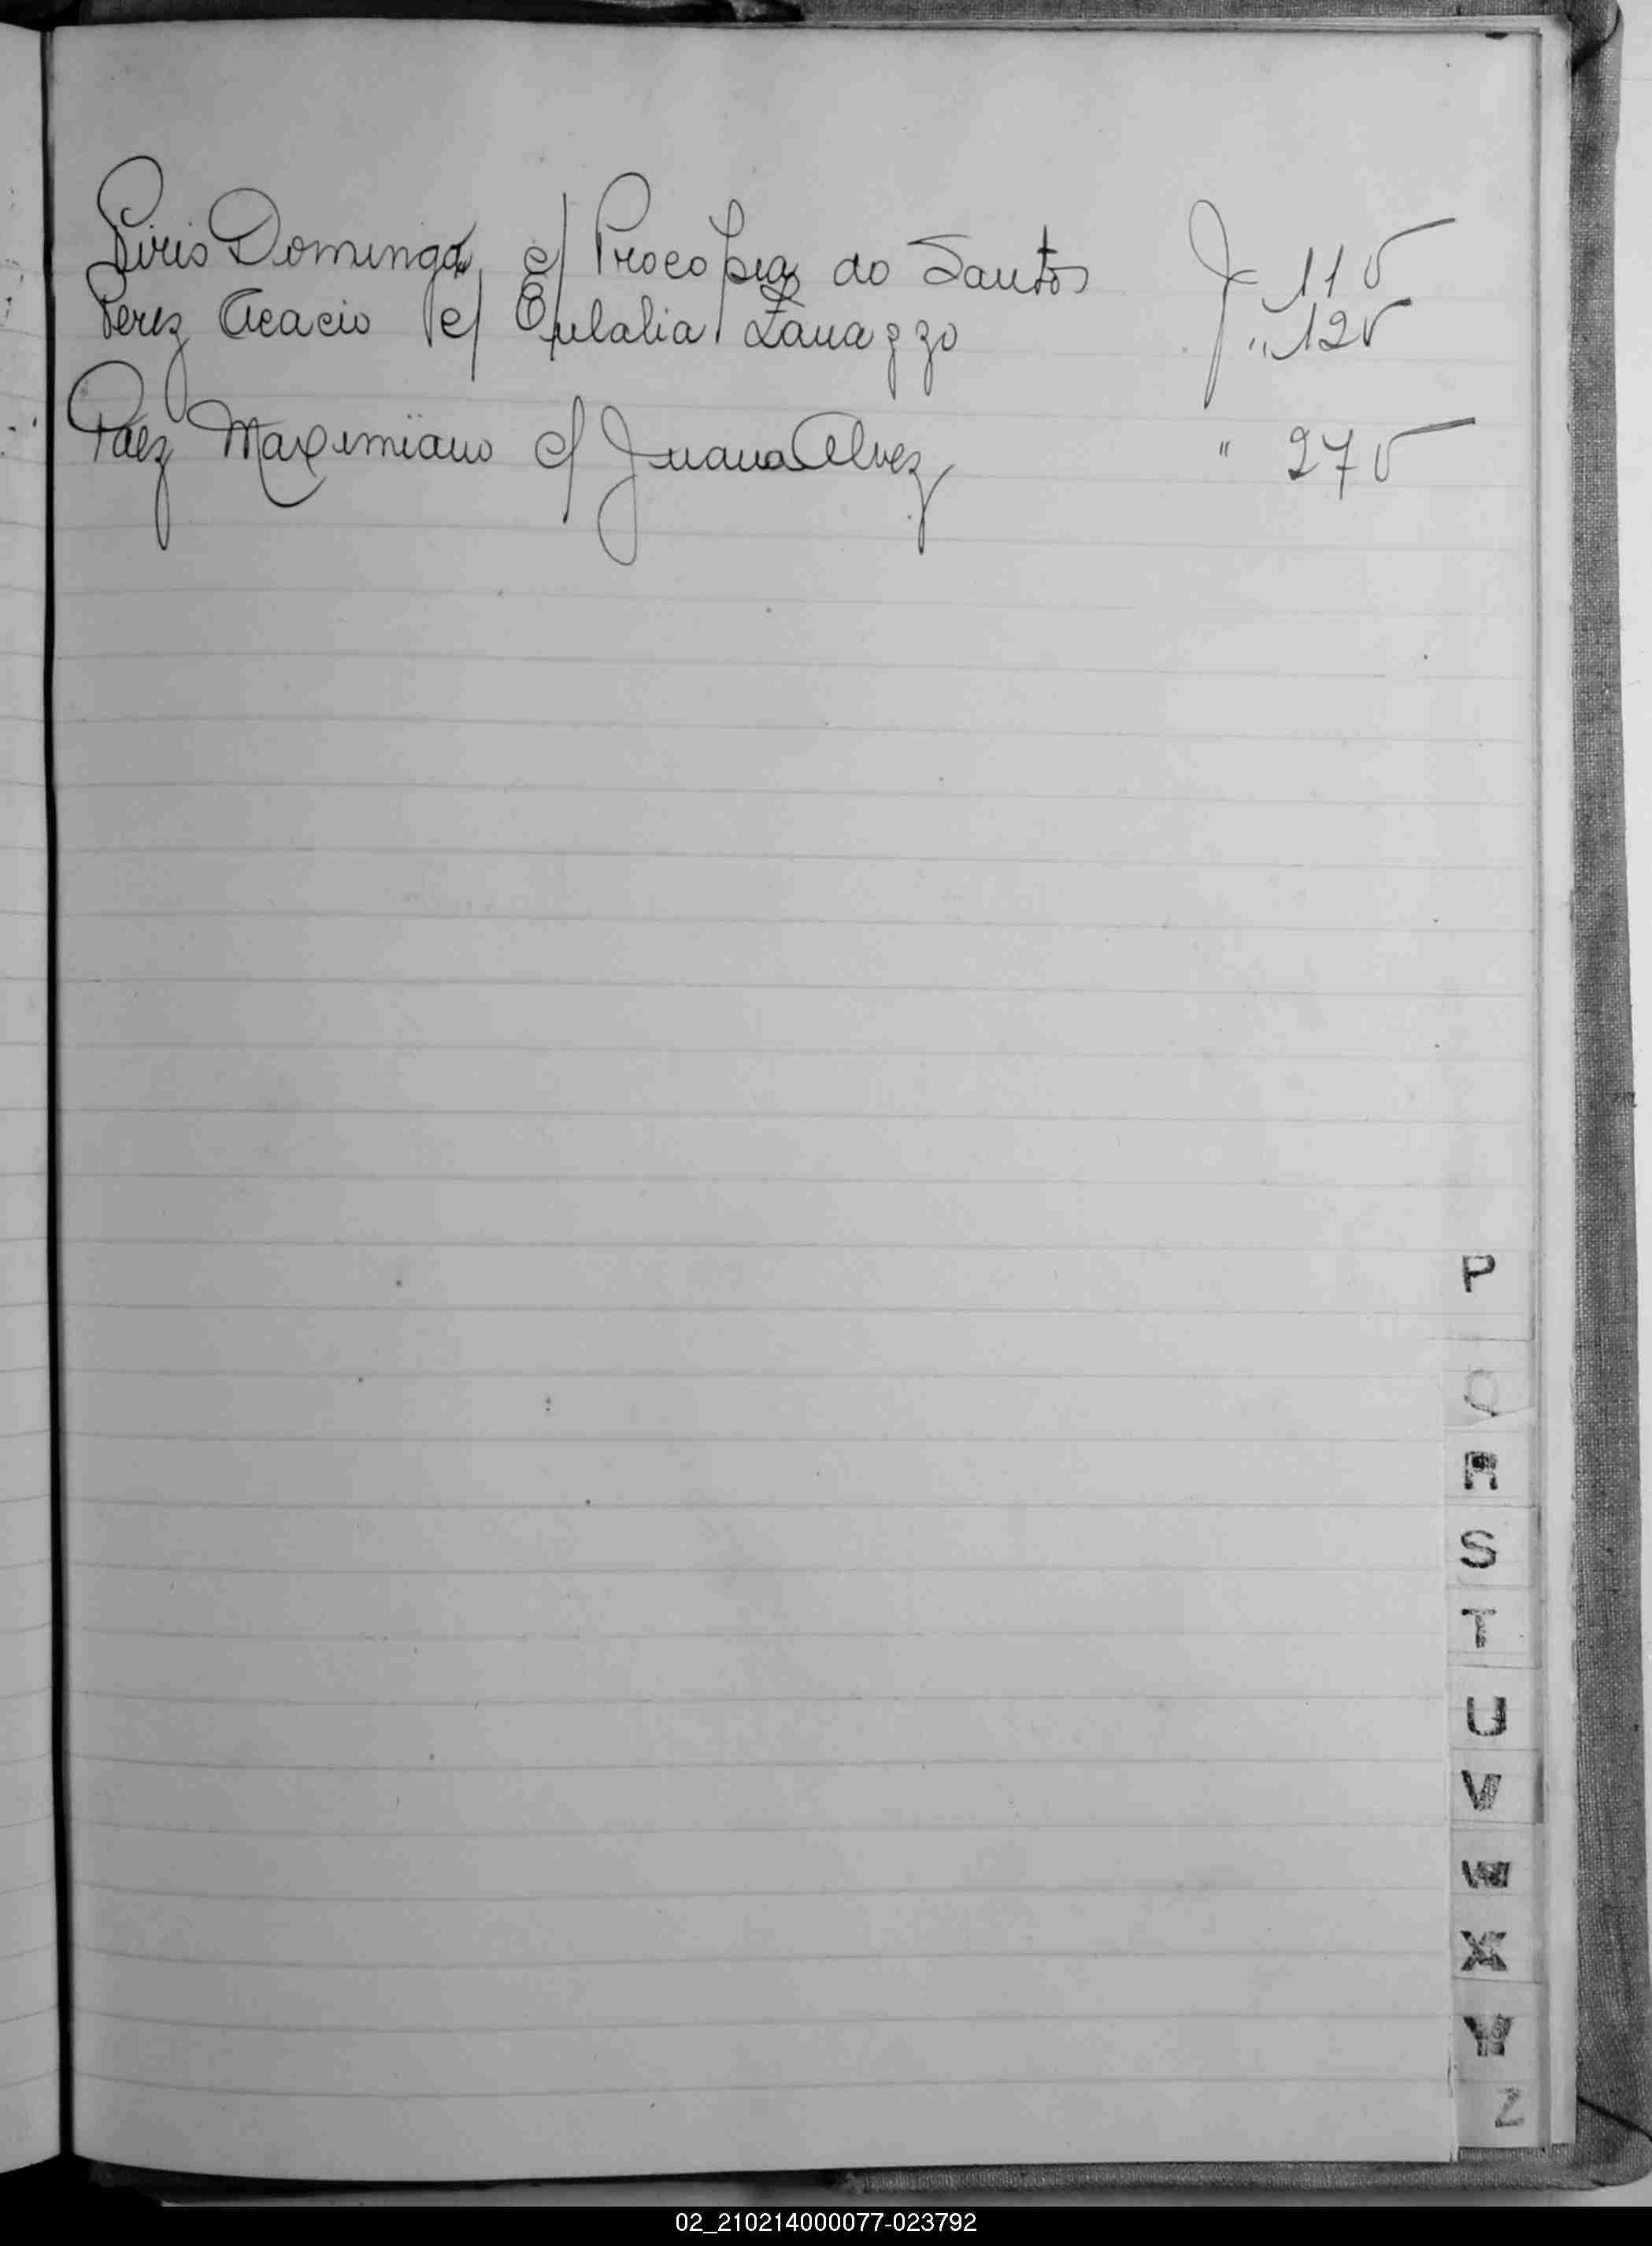 Piris Domingo c/ Procopia do Santos F 11 √
Perez Acacio c/ Eulalia Zanazzo " 12 √
Páez Maximiano c/ Juana Alvez " 27 √
P
Q
R
S
T
U
V
W
X
Y
Z
02_210214000077-023792